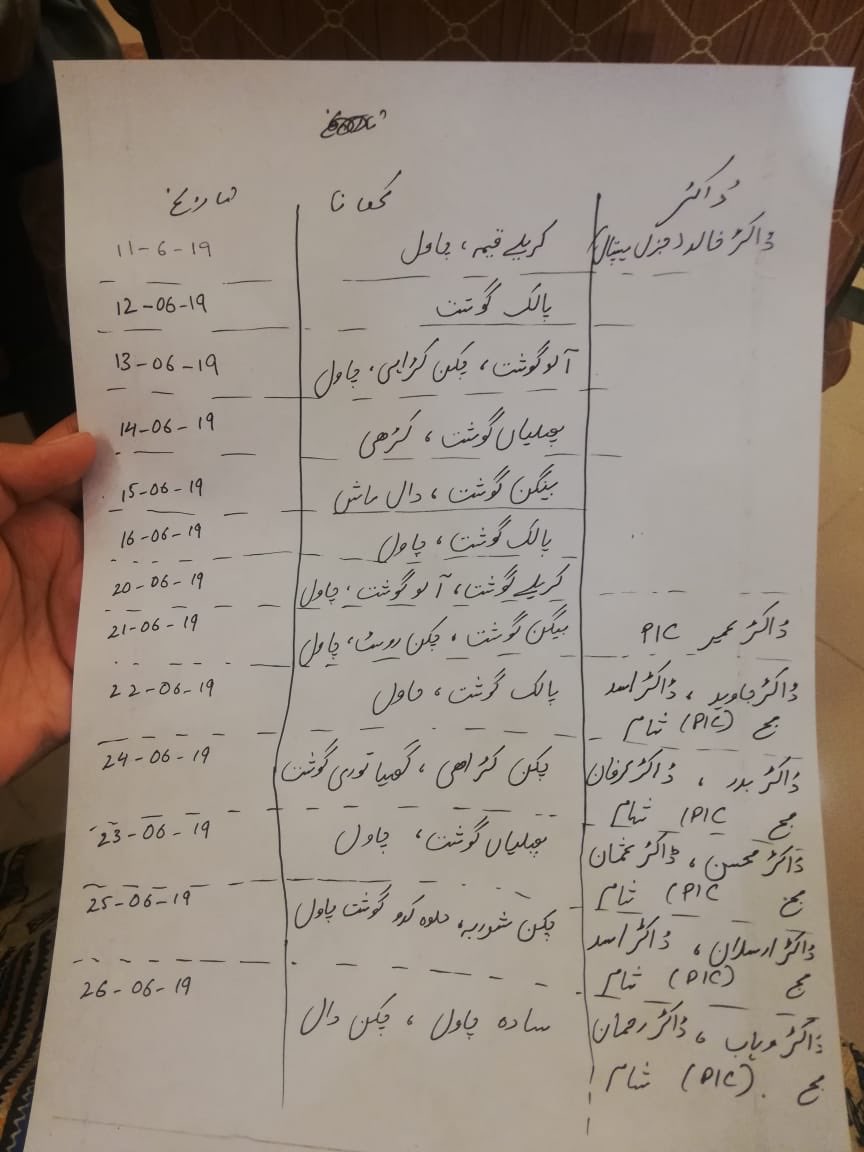 ڈاکٹر کھانا تاریخ
ڈاکٹر خالد (جنرل ہسپتال) کریلے قیمہ، چاول 11-6-19
پالک گوشت 12-06-19
آلو گوشت، چکن کڑاہی، چاول 13-06-19
پھلیاں گوشت، کڑھی 14-06-19
بینگن گوشت، دال ماش 15-06-19
پالک گوشت، چاول 16-06-19
کریلے گوشت، آلو گوشت، چاول 20-06-19
ڈاکٹر عمیر PIC بینگن گوشت، چکن روسٹ، چاول 21-06-19
ڈاکٹر جاوید، ڈاکٹر اسد پالک گوشت، چاول 22-06-19
صبح (PIC) شام
ڈاکٹر بدر، ڈاکٹر عرفان چکن کڑاھی، گھیا توری گوشت 24-06-19
صبح (PIC شام
ڈاکٹر محسن، ڈاکٹر عثمان پھلیاں گوشت، چاول 23-06-19
صبح (PIC شام
ڈاکٹر ارسلان، ڈاکٹر اسد چکن شوربہ، حلوہ کدو گوشت چاول 25-06-19
صبح (PIC) شام
ڈاکٹر وہاب، ڈاکٹر رحمان سادہ چاول، چکن دال 26-06-19
صبح (PIC) شام